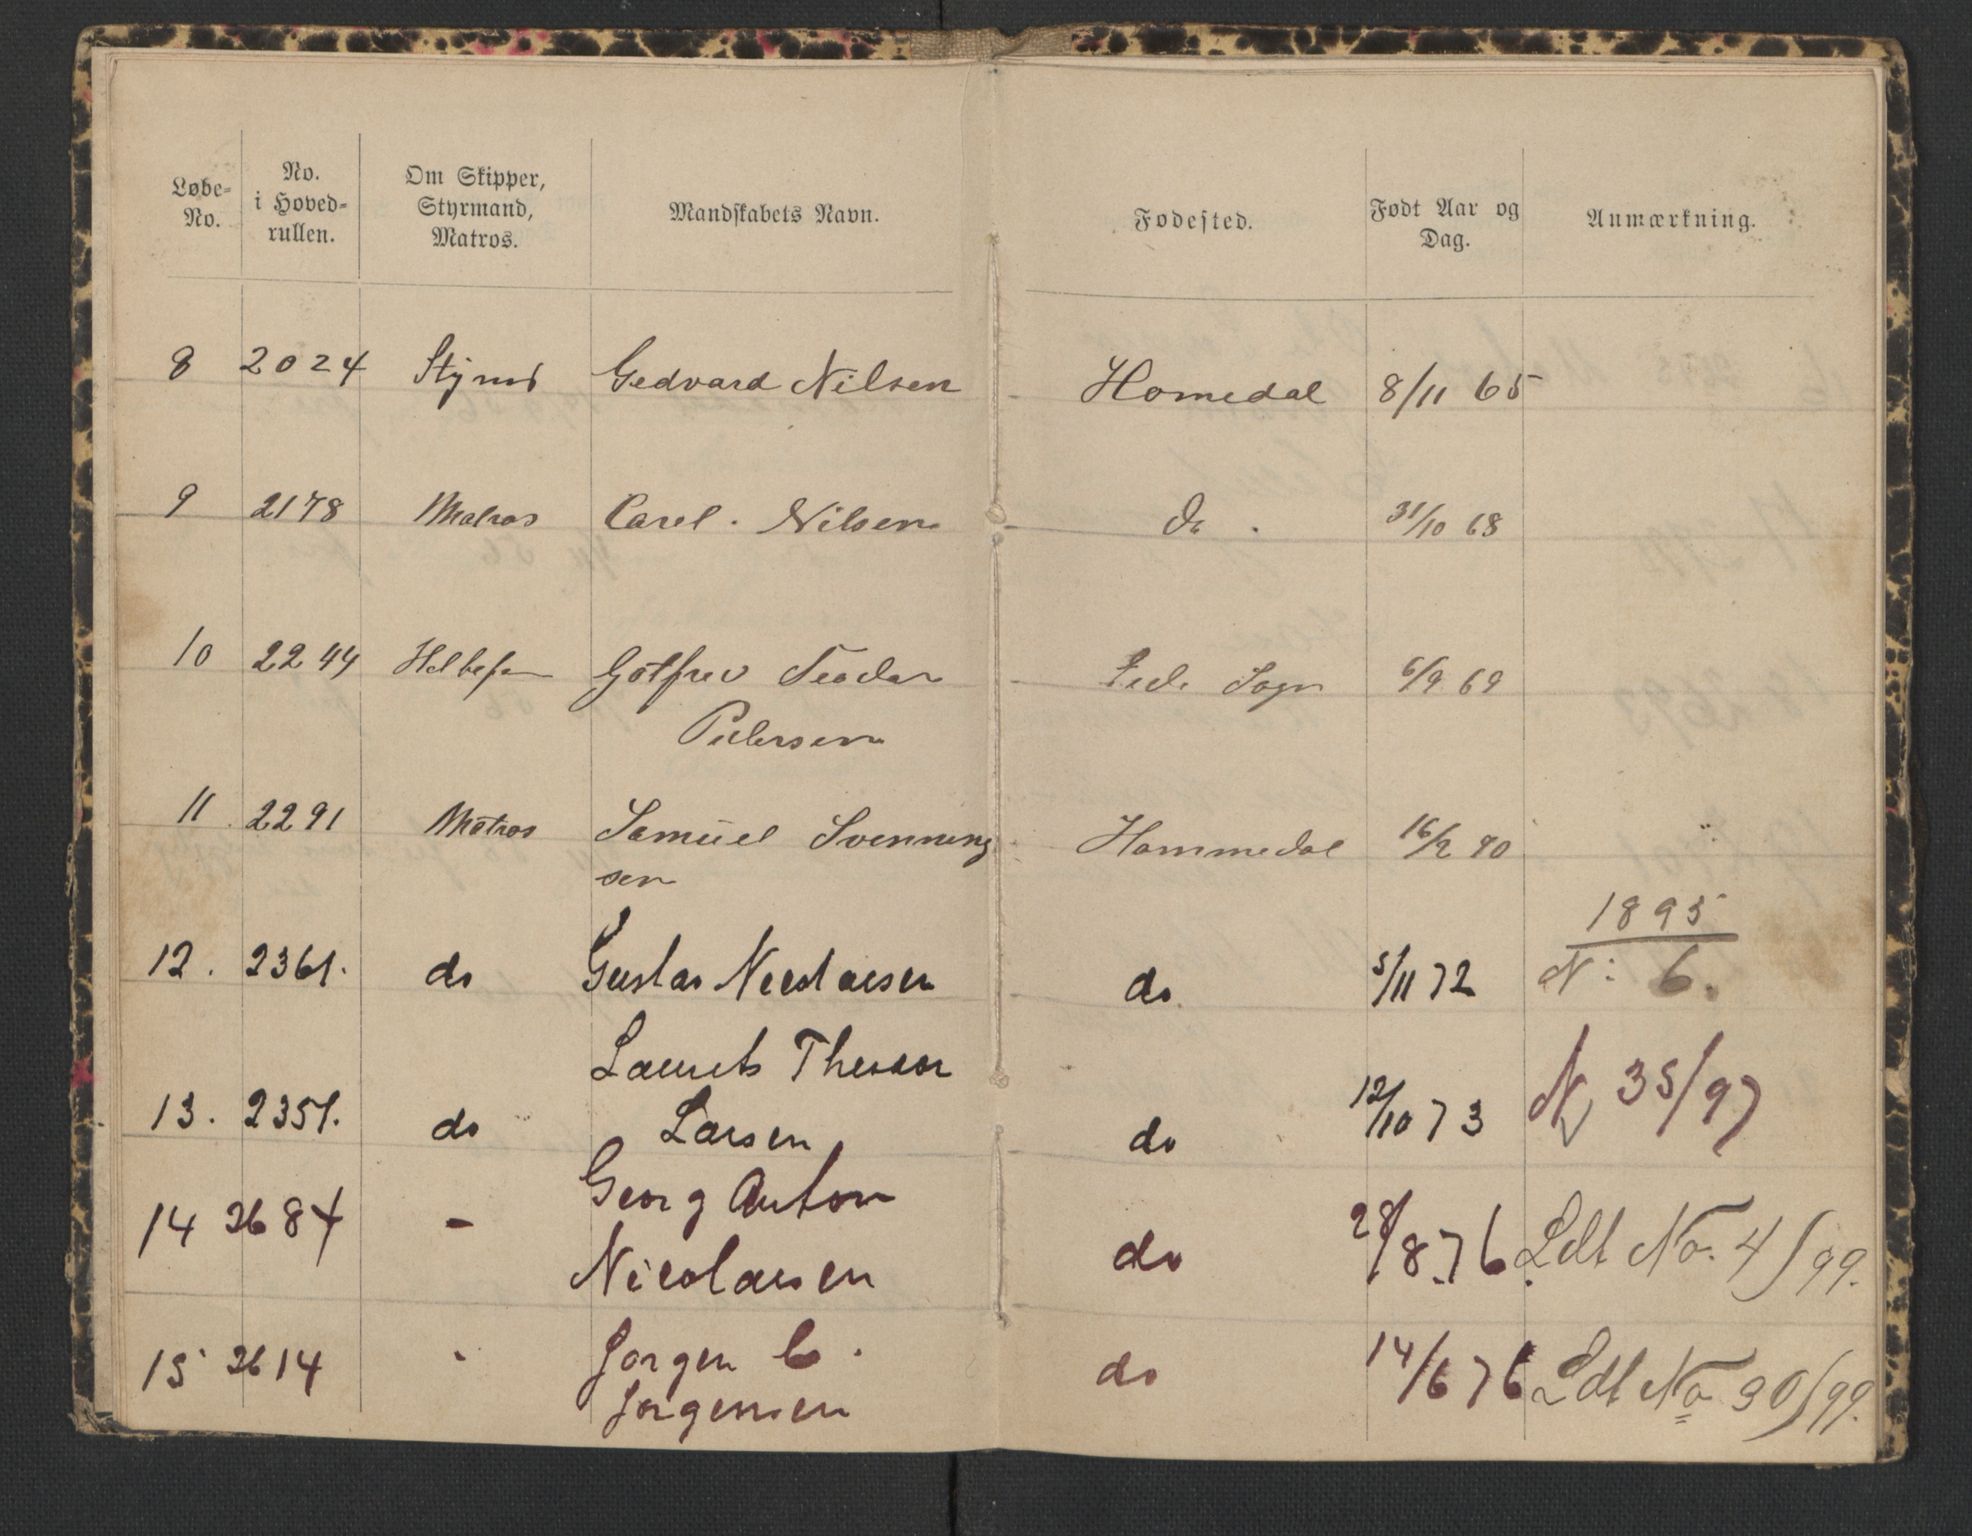 Løbe-No. | No. i Hoved-rullen. | Om Skipper, Styrmand, Matros. | Mandskabets Navn. | Fødested. | Født Aar og Dag. | Anmærkning.
8 2024 Gedvard Nilsen Homedal 8/11 65
9 2178 Matros Carel. Nilsen do. 31/10 68
10 2244 Gotfred Teodor Sogn 6/9 69
Pedersen
11. 2291 Matros Samuel Svenning Hommedal 16/2 70
sen
1895
12. 2361. do Gustav Nicolaisen do 5/11 72 N: 6.
Laurits
13. 2351. do Larsen do 12/10 73 N 35/97
Georg Anton
14 2684 - Nicolaisen do 28/8.76 Ldt No. 4/99.
15 2614 - Jørgen C. do 14/6 76 Ldt No 30/99.
Jørgensen